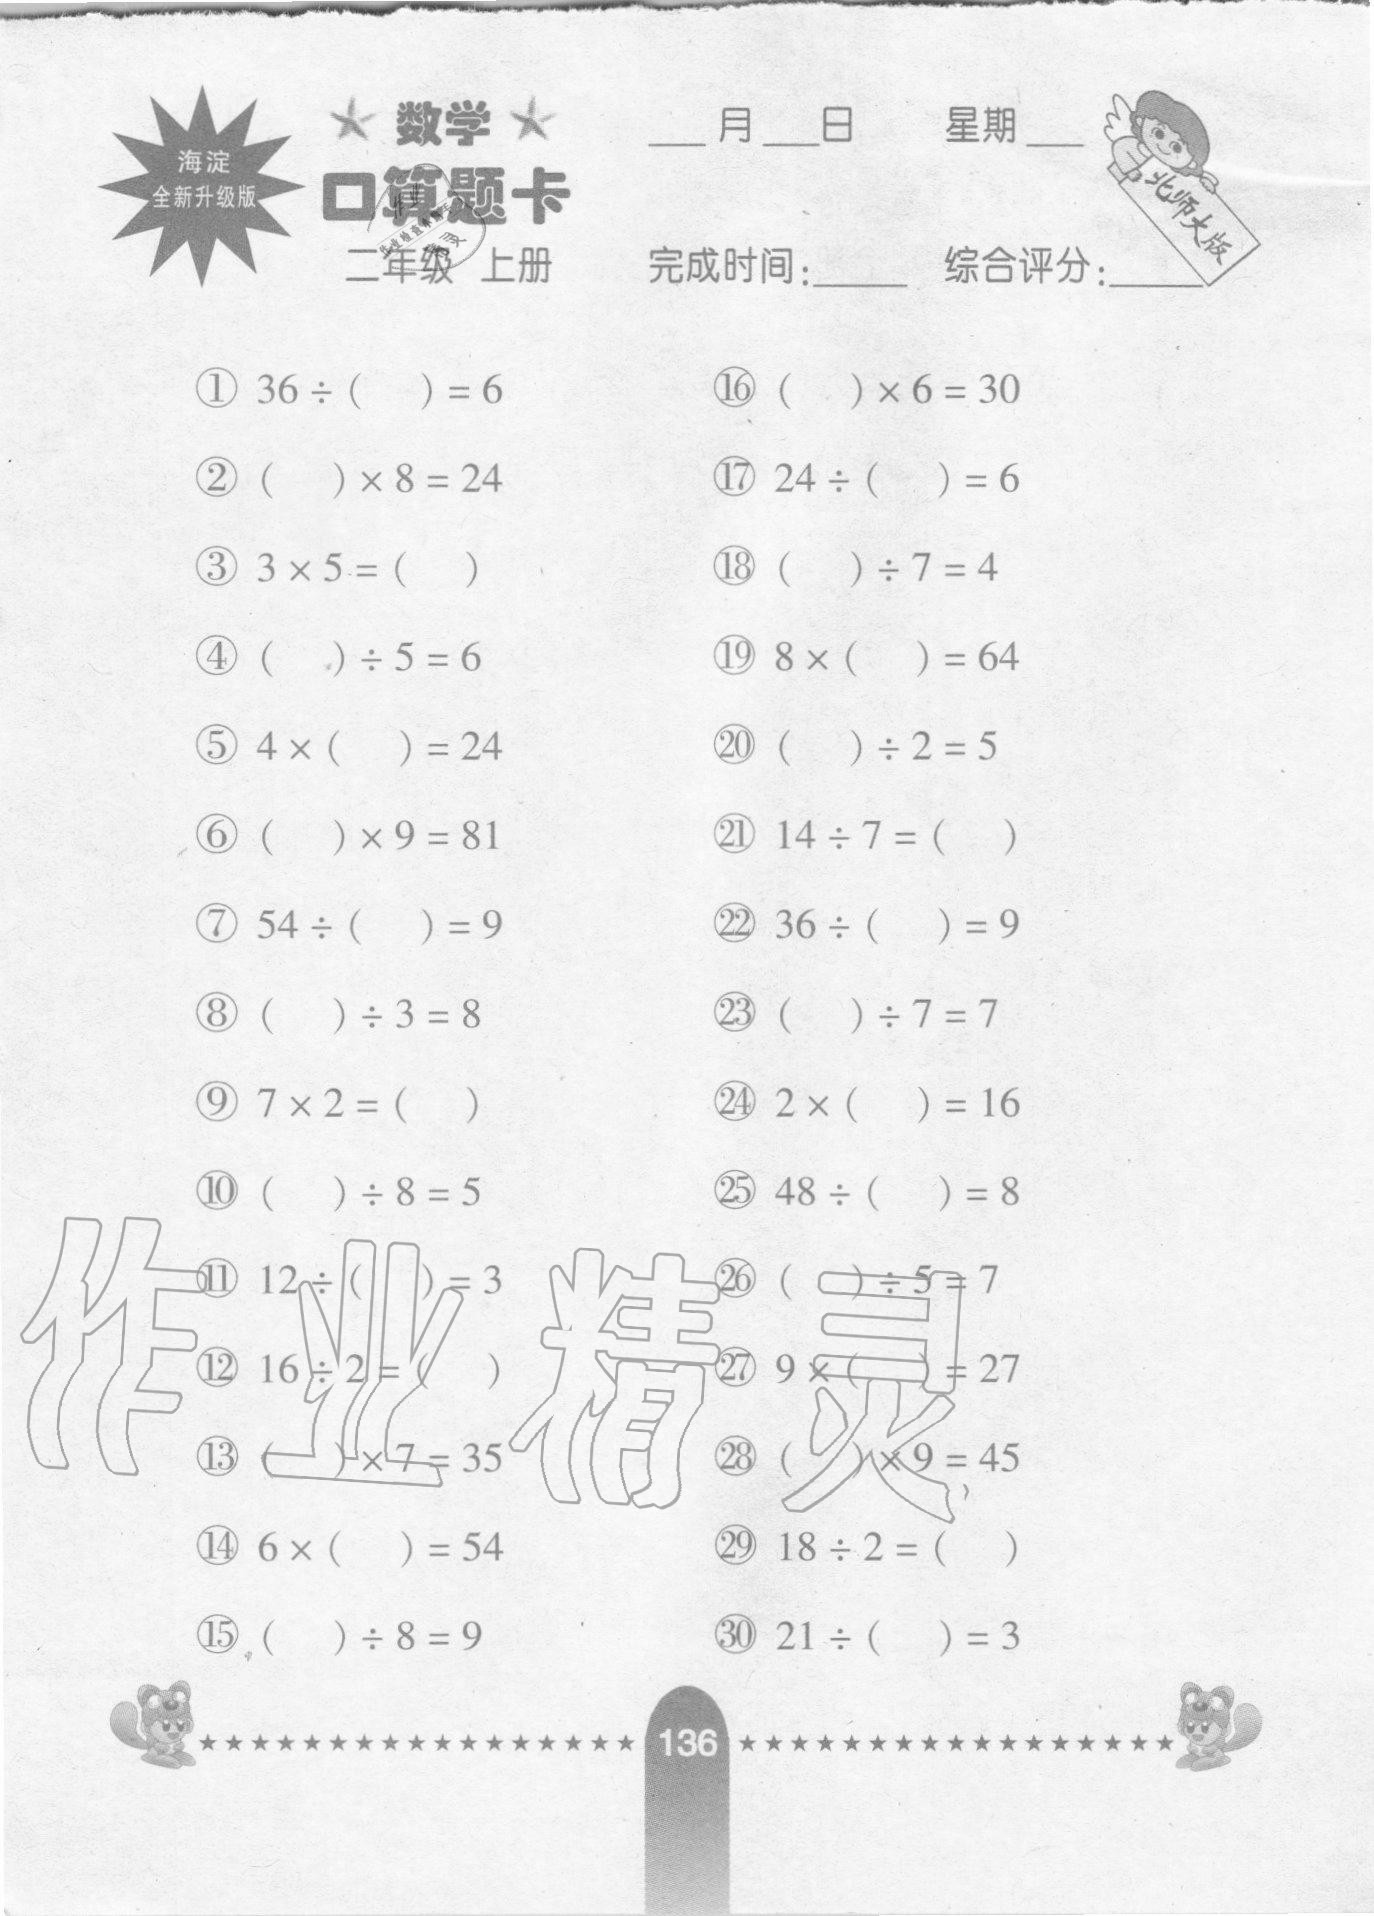 海淀
全新升级版
数学
口算题卡
二年级 上册
___月___日 星期___
完成时间:_____ 综合评分:_____
北师大版
① 36÷( )=6
② ( )×8=24
③ 3×5=( )
④ ( )÷5=6
⑤ 4×( )=24
⑥ ( )×9=81
⑦ 54÷( )=9
⑧ ( )÷3=8
⑨ 7×2=( )
⑩ ( )÷8=5
⑪ 12÷( )=3
⑫ 16÷2=( )
⑬ ( )×7=35
⑭ 6×( )=54
⑮ ( )÷8=9
⑯ ( )×6=30
⑰ 24÷( )=6
⑱ ( )÷7=4
⑲ 8×( )=64
⑳ ( )÷2=5
㉑ 14÷7=( )
㉒ 36÷( )=9
㉓ ( )÷7=7
㉔ 2×( )=16
㉕ 48÷( )=8
㉖ ( )÷5=7
㉗ 9×( )=27
㉘ ( )×9=45
㉙ 18÷2=( )
㉚ 21÷( )=3
作业精灵
136